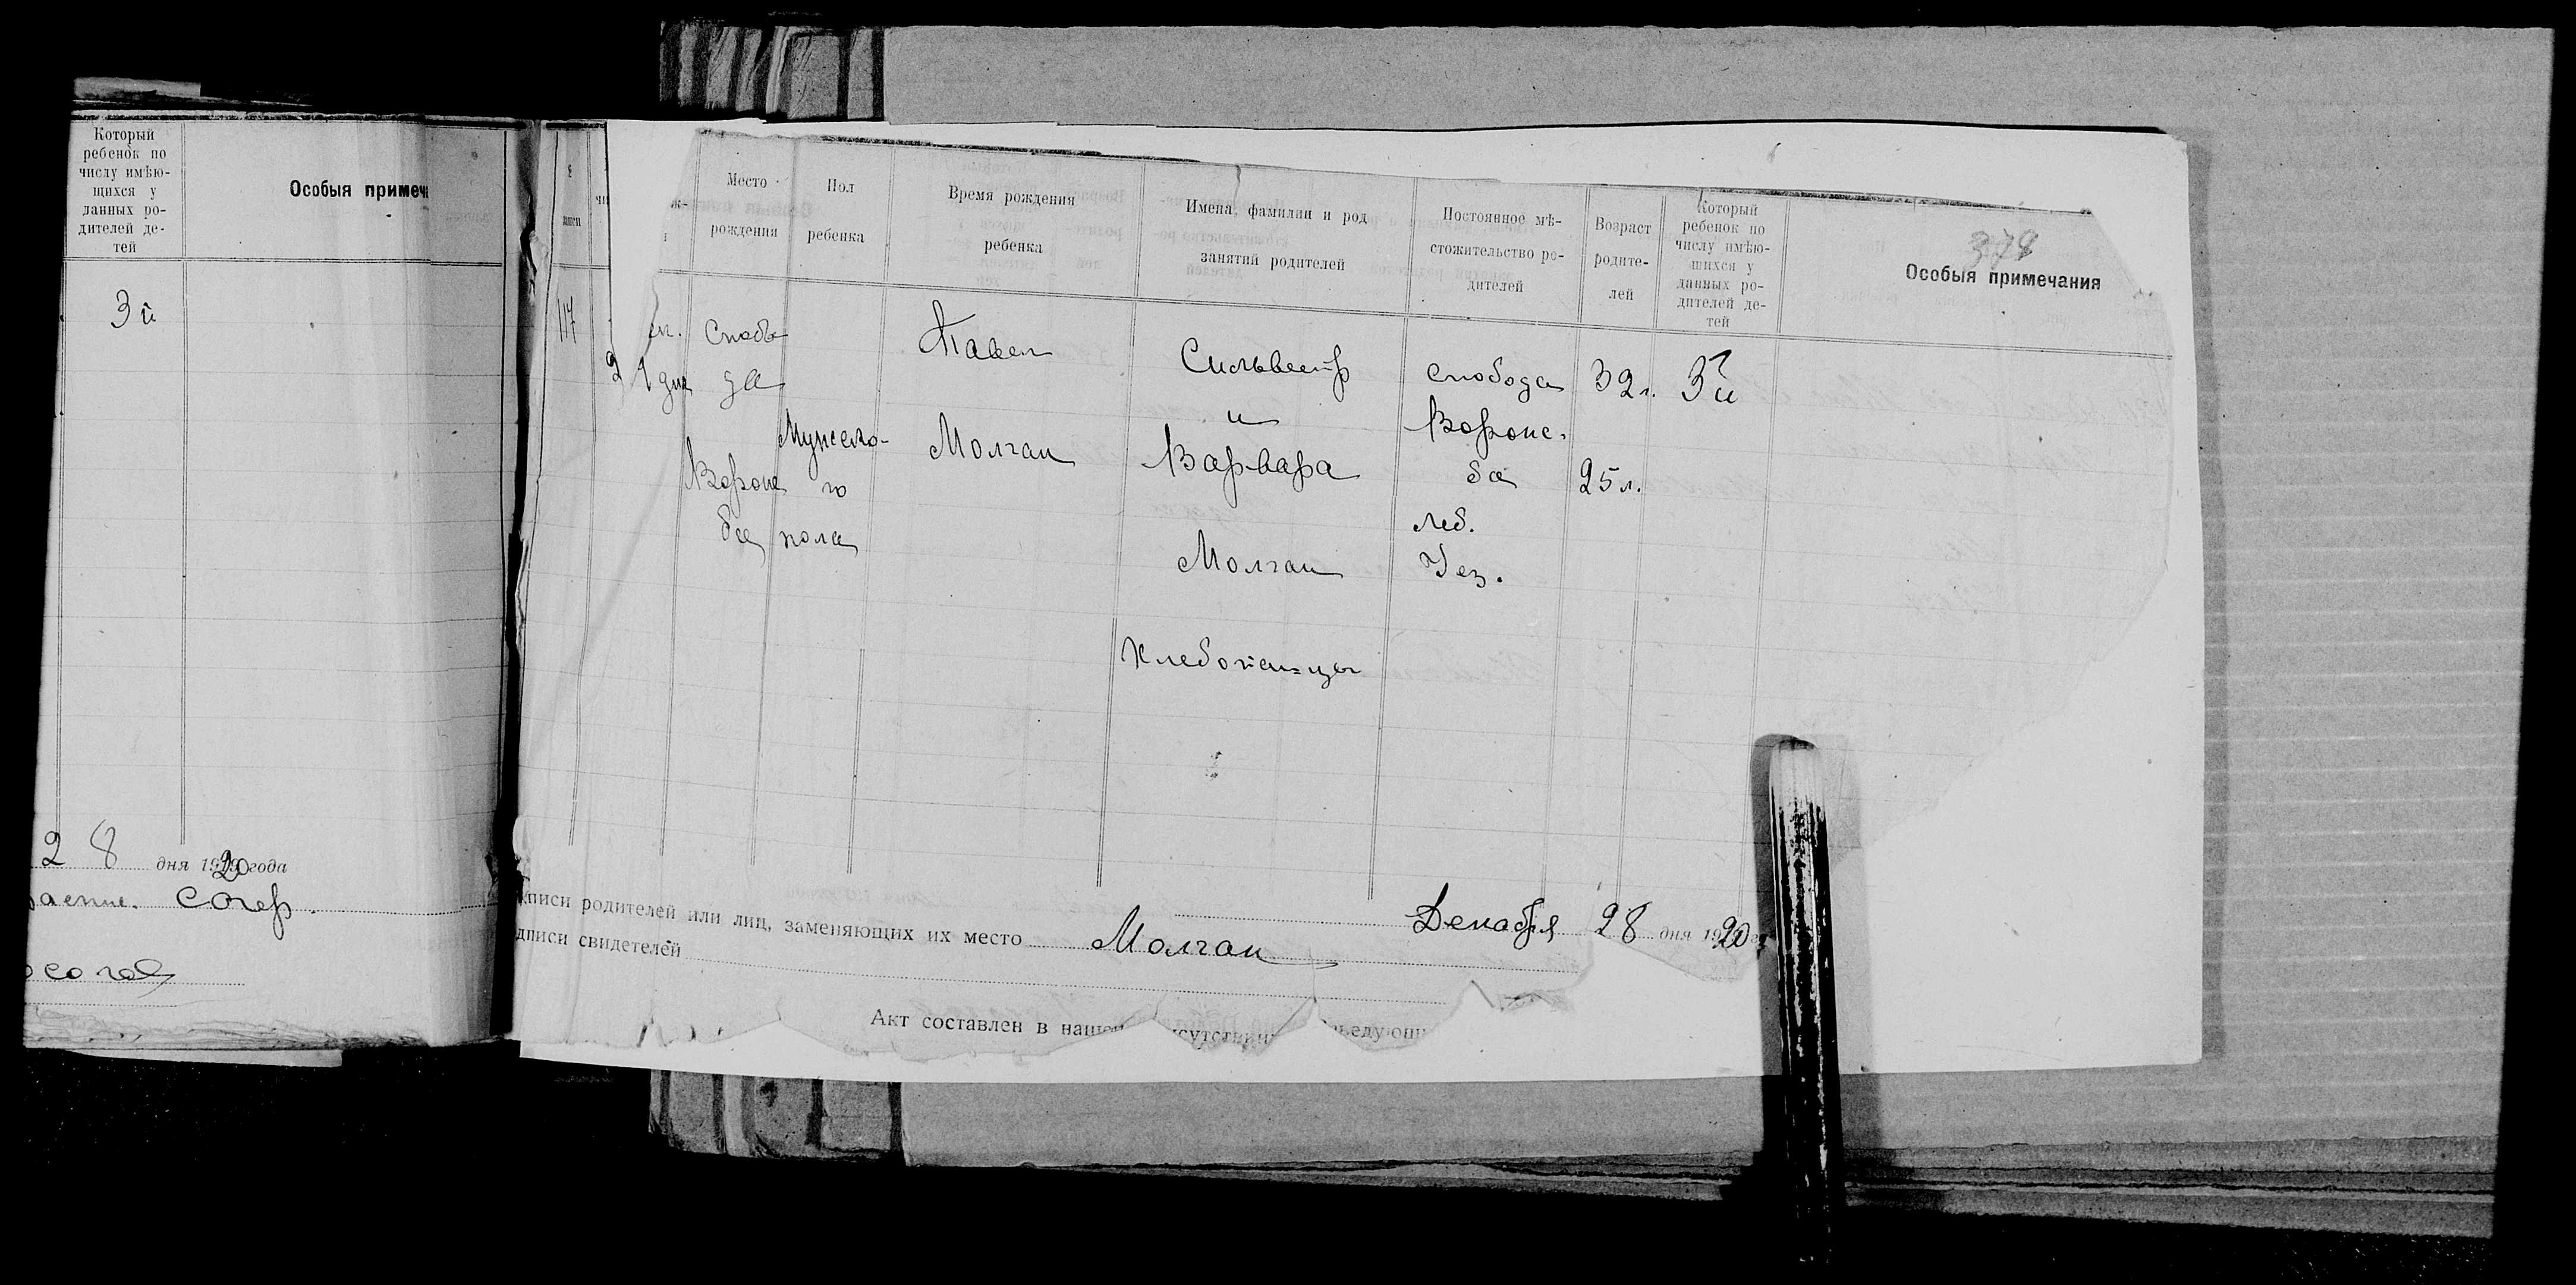 Который
ребенок по
числу имѣю-
щихся у
данных ро-
дителей де-
тей
Особыя примеч
3й
28 дня 1920 года
Место
рождения
Пол
ребенка
Время рождения
ребенка
Имена, фамилии и род
занятий родителей
Постоянное мѣ-
стожительство ро-
дителей
Возраст
родите-
лей
Который
ребенок по
числу имѣю-
шихся у
данных ро-
дителей де-
тей
378
Особыя примечания
117
21 дня
Слобо
да
Вороже
ба
Мужеско-
го
пола
Павел
Молган
Сильвестр
и
Варвара
Молган
Хлебопашцы
слобода
Вороже.
ба
Леб.
Уез.
32 л.
25 л.
3й
Декабря 28 дня 1920
писи родителей или лиц, заменяющих их место Молган
дписи свидетелей
Акт составлен в нашем